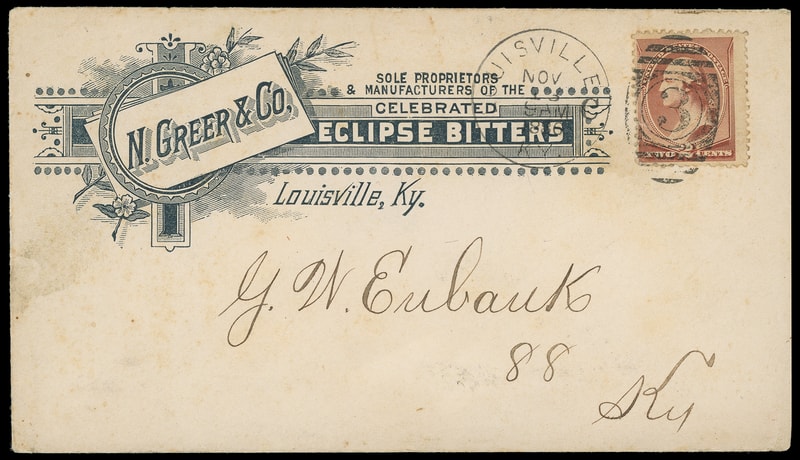 N. GREER & CO.
SOLE PROPRIETORS
& MANUFACTURERS OF THE
CELEBRATED
ECLIPSE BITTERS
Louisville, Ky.
UISVILLE
NOV
9AM
KY.
3
TWO CENTS
G. W. Eubank
88
Ky